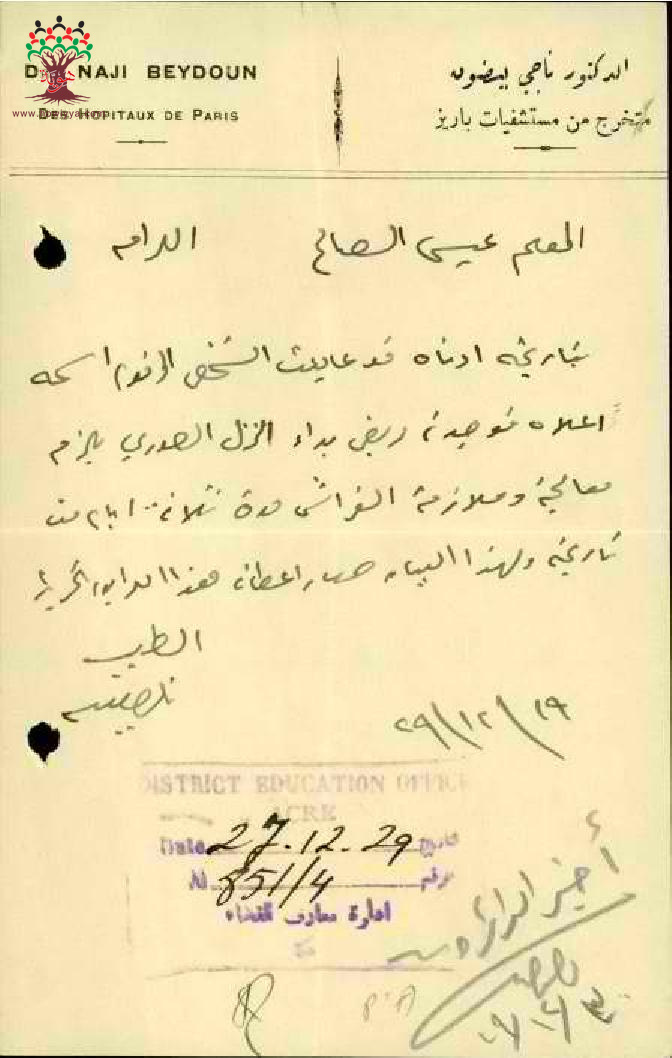 DR NAJI BEYDOUN
DES HOPITAUX DE PARIS
الدكتور ناجي بيضون
متخرج من مستشفيات باريز
المعلم عيسى الصالح الرامه
بتاريخه ادناه قد عاينت الشخص المرقوم اسمه
اعلاه فوجدته مريض بداء الصدري يلزم
معالجة وملازمة الفراش مدة ثلاثة ايام من
تاريخه ولهذا البيان صار اعطائه هذا
الطبيب
٢٩/١٢/١٩
DISTRICT EDUCATION OFFICE
ACRE
Date 27.12.29 تاريخ
No 851/4 نمرة
ادارة معارف القضاء